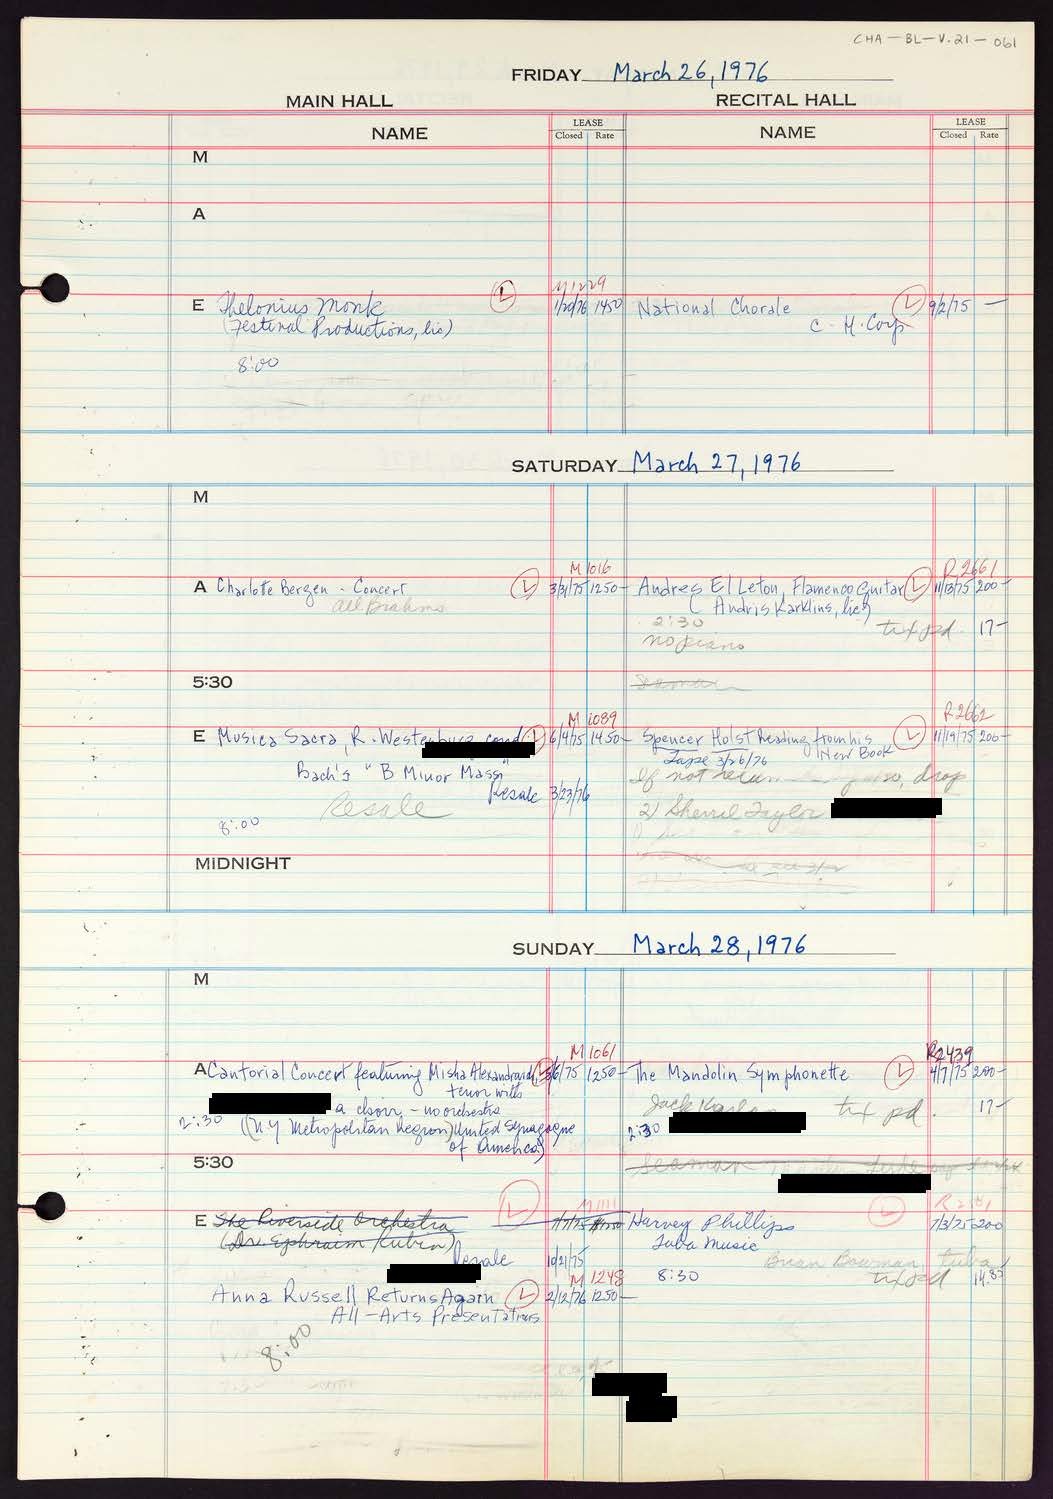 CHA-BL-V.21-061
FRIDAY March 26, 1976
MAIN HALL RECITAL HALL
NAME LEASE Closed Rate NAME LEASE Closed Rate
M
A
M1229
E Thelonius Monk L 1/20/76 1450 National Chorale L 9/2/75 —
(Festival Productions, lic) C. H. Corp
8:00
SATURDAY March 27, 1976
M
M 1016 R 2661
A Charlotte Bergen - Concert L 3/31/75 1250- Andres El Leton, Flamenco Guitar L 11/13/75 200-
All Brahms ( Andris Karklins, lic)
2:30 tax pd. 17-
no piano
5:30 Seaman
M 1089 R 2662
E Musica Sacra, R. Westenburg cond L 6/4/75 1450- Spencer Holst Reading from his L 11/19/75 200-
New Book
Tape 3/26/76
Bach's "B Minor Mass" If not drop
Resale 3/23/76
Resale 2) Sherril Taylor
8:00
MIDNIGHT
SUNDAY March 28, 1976
M
M 1061 R2439
A Cantorial Concert featuring Misha Alexandrovich, L 5/6/75 1250- The Mandolin Symphonette L 4/7/75 200-
tenor with
a choir, - no orchestra Jack tax pd. 17-
2:30 (N Y Metropolitan Region) United Synagogue 2:30
of America)
5:30 Seaman
M1111
E The Riverside Orchestra L 7/7/75 Harvey Phillips L 7/3/75 200
(Dr. Ephraim Rubin) Tuba Music
Resale 10/21/75 Brian Bowman, tuba
M 1248 8:30 tax pd 14.85
Anna Russell Returns Again L 2/12/76 1250-
All-Arts Presentations
8:00